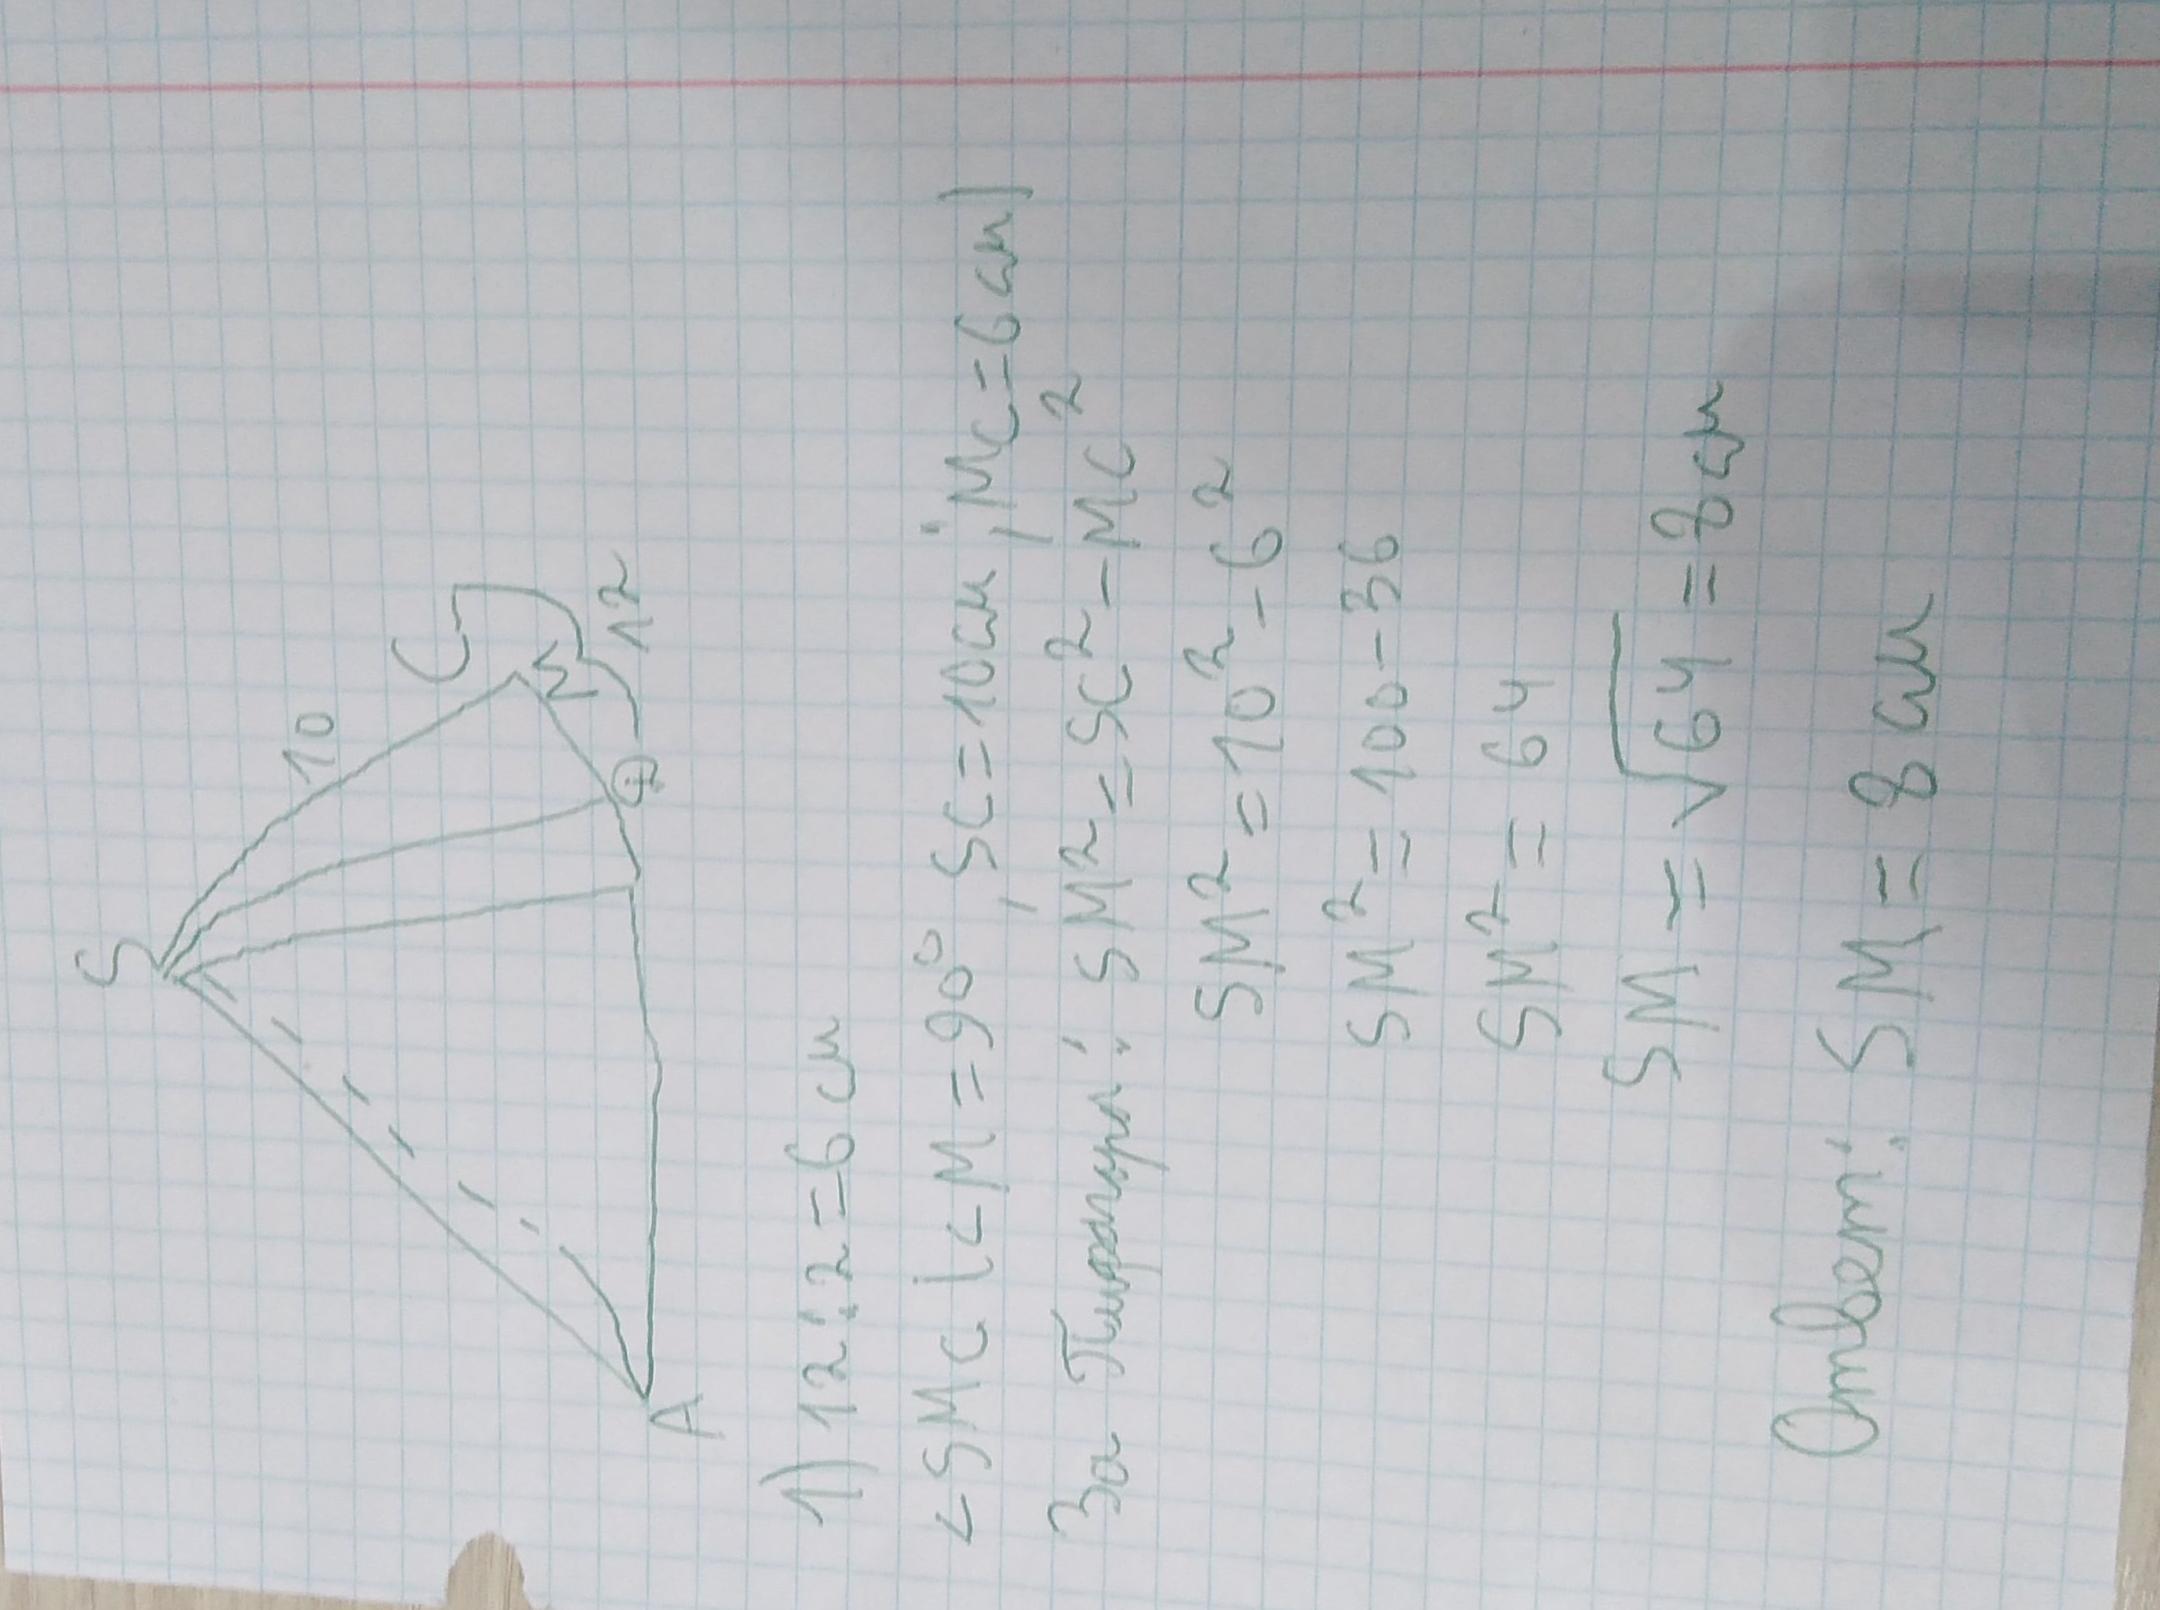 S
10
C
M
12
A
1) 12:2=6 см
<SMC (<M=90°, SC=10см; MC=6см)
За Піфагора: SM²=SC²-MC²
SM²=10²-6²
SM²=100-36
SM²=64
SM=√64=8см
Ответ: SM=8 см